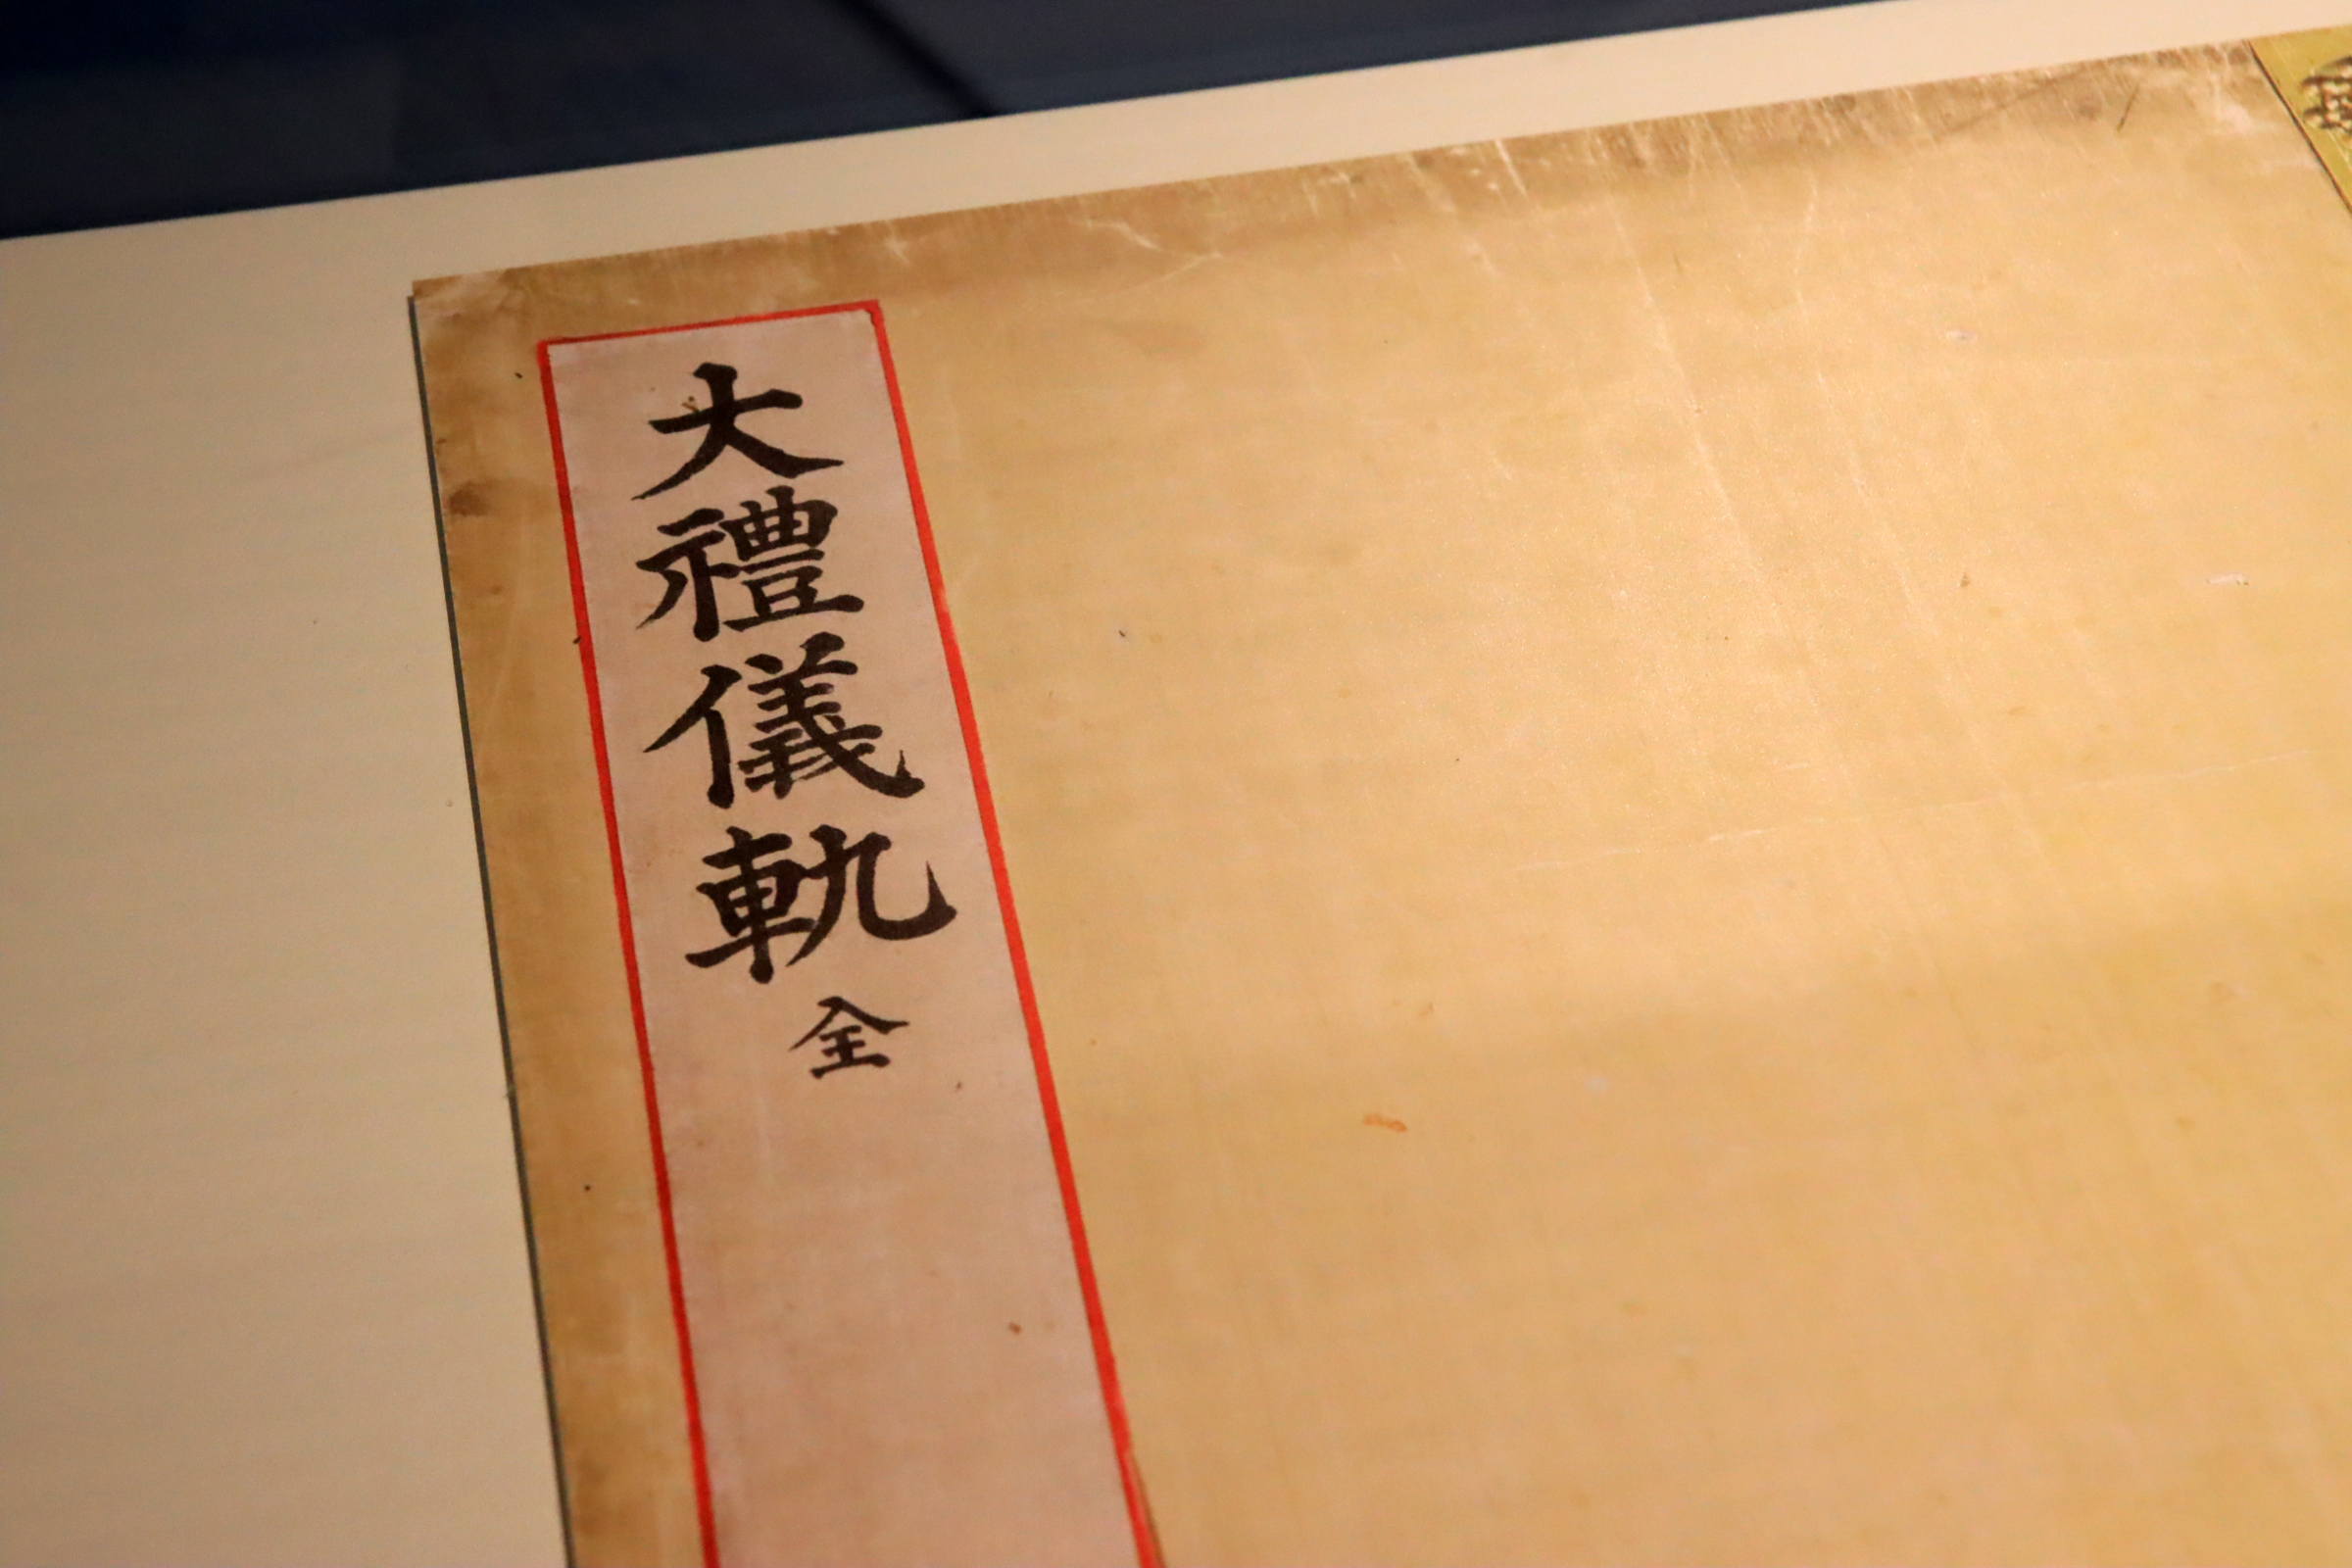 大禮儀軌 全